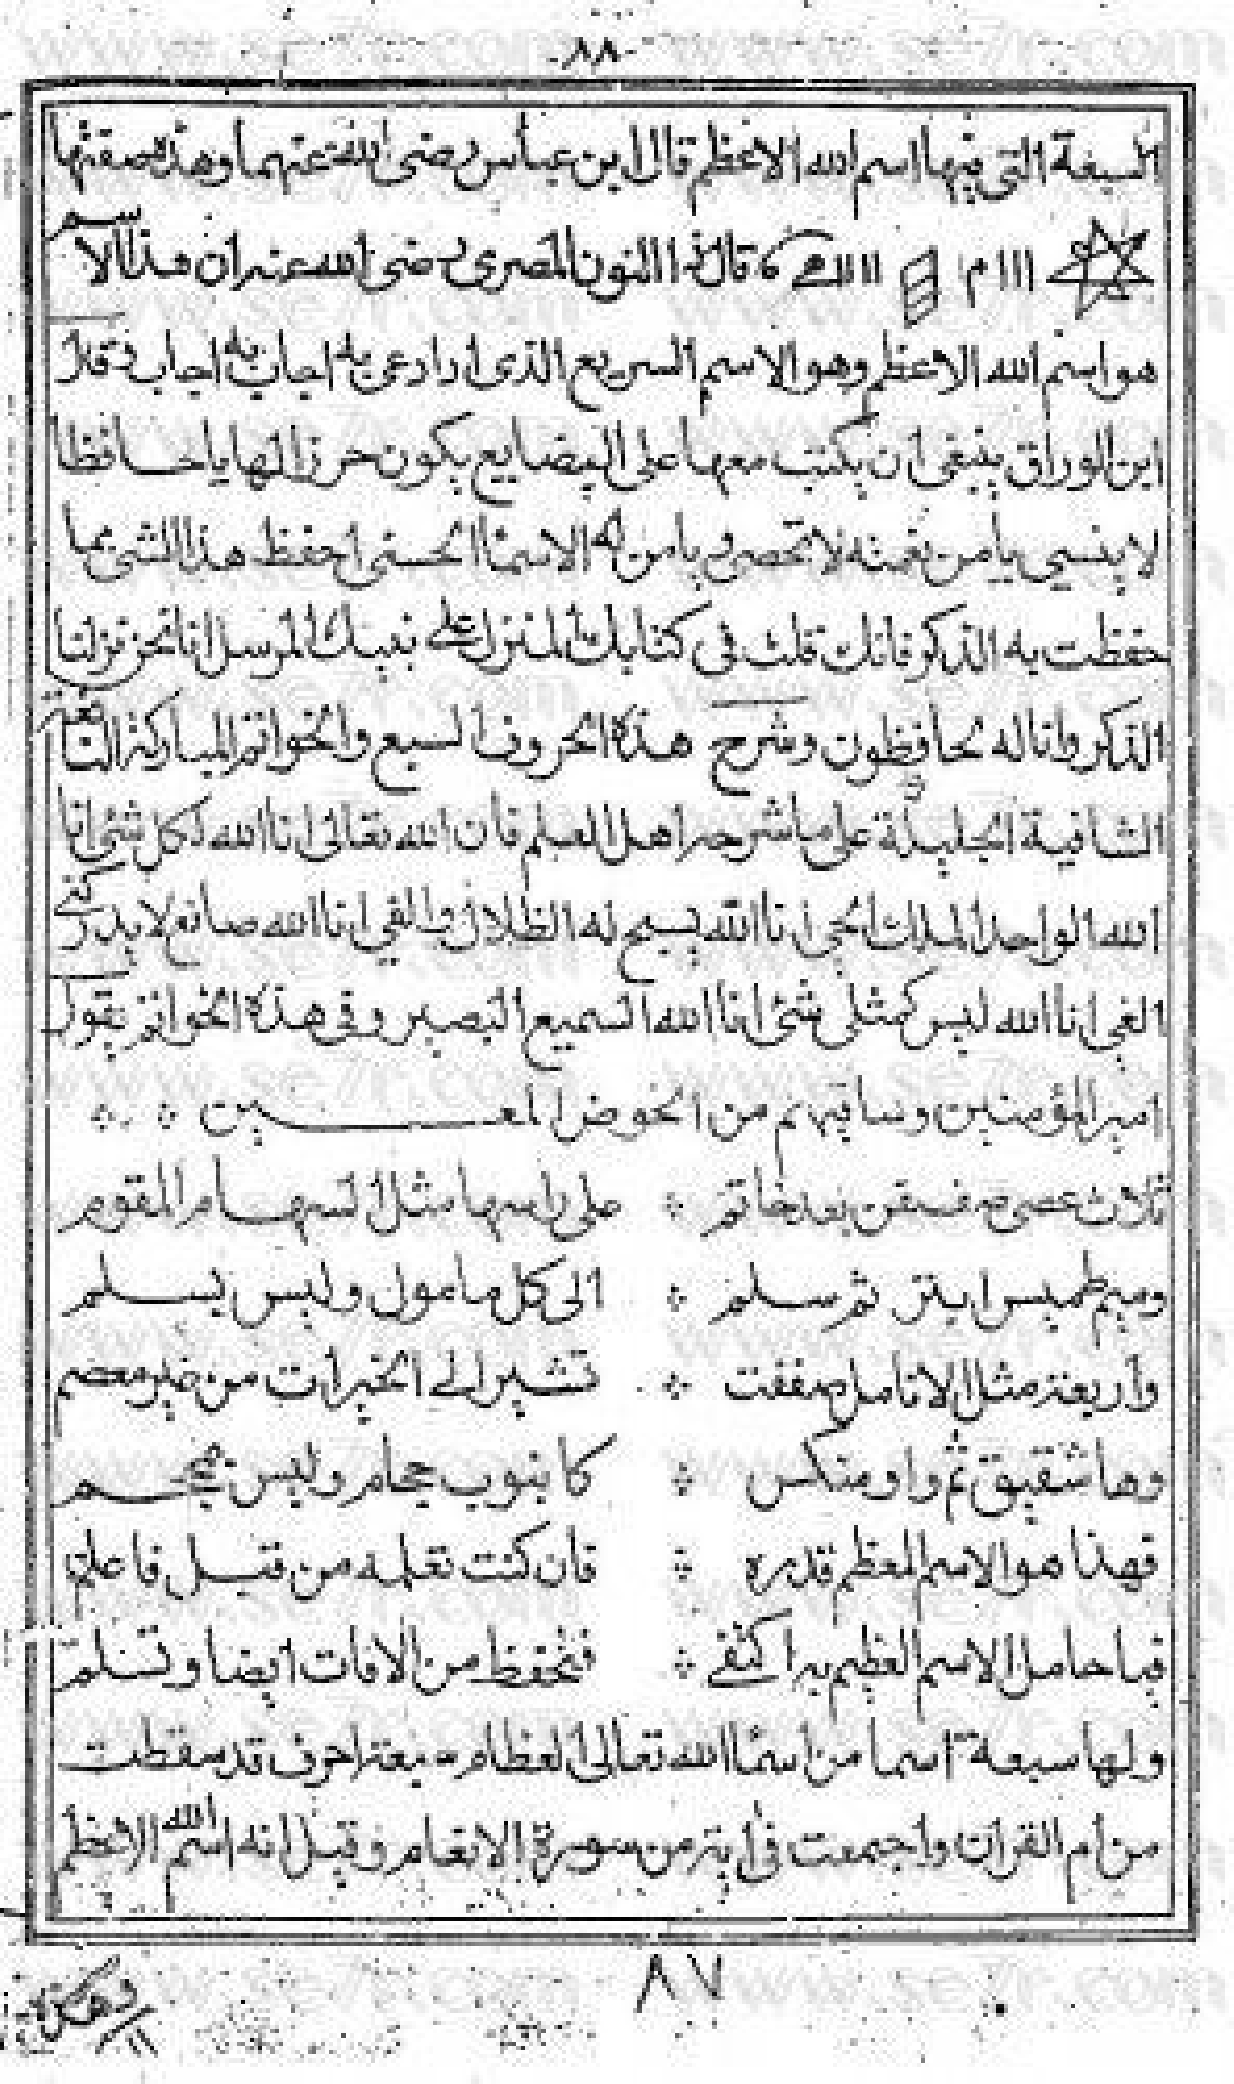 ٨٨
السبعة التى فيها اسم الله الاعظم قال ابن عباس رضى الله عنهما وهذه صفتها
١١١ م ١١١١ قال ذا النون المصرى رضى الله عنه ان هذا الاسم
هو اسم الله الاعظم وهو الاسم السريع الذى اذا دعى به اجاب به اجاب وقال
ابن الوراق ينبغى ان يكتب معها على البضايع يكون حرزا لها يا حافظا
لا ينسى يا من نعمته لا تحصى ويا من له الاسماا الحسنى احفظ هذا الشى بما
حفظت به الذكر فانك قلت فى كتابك المنزل على نبيك المرسل انا نحن نزلنا
الذكر وانا له لحافظون وشرح هذه الحروف السبع والخواتم المباركة النافعة
الشافية الجليلة على ما شرحه اهل العلم فان الله تعالى انا الله لكل شئ انا
الله الواحد الملك الحى انا الله يسبح له الظلال والفى انا الله صانع لا يدركنى
الغى انا الله ليس كمثلى شئ انا الله السميع البصير وفى هذه الخواتم يقول
امير المؤمنين وساقيهم من الحوض المعين
ثلاث عصى صففن بعد خاتم على راسها مثل السهام المقوم
وميم طميس ابتر ثم سلم الى كل مامول وليس بسلم
واربعة مثل الانامل صففت تشير الى الخيرات من غير معصم
وها شقيق ثم واو منكس كانبوب حجام وليس بمحجم
فهذا هو الاسم المعظم قدره فان كنت تعلمه من قبل فاعلم
فيا حامل الاسم العظيم به اكتفى فتحفظ من الافات ايضا وتسلم
ولها سبعة اسما من اسماا الله تعالى العظام سبعة احرف قد سقطت
من ام القران واجمعت فى اية من سورة الانعام وقيل انه اسم الله الاعظم
٨٧